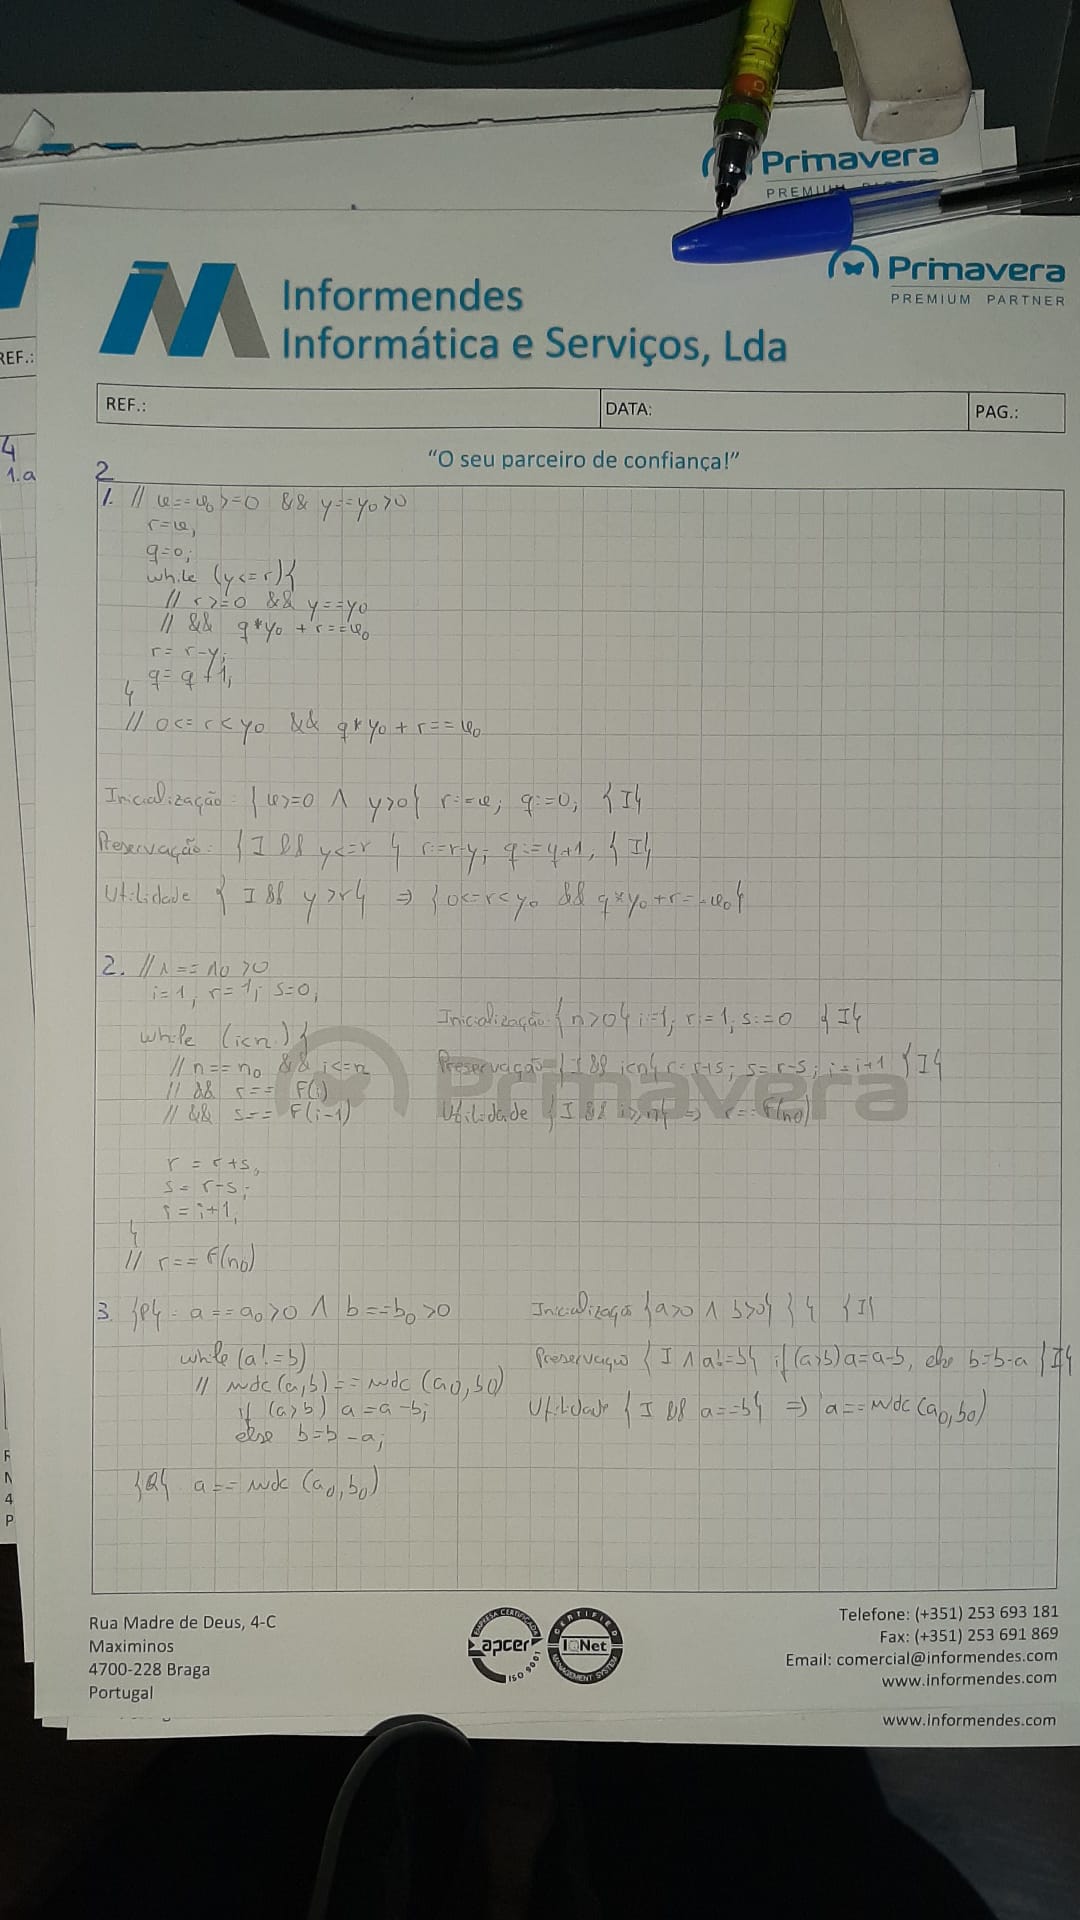 Primavera
PREMIUM
Primavera
PREMIUM PARTNER
Informendes
Informática e Serviços, Lda
REF.:
REF.:
DATA:
PAG.:
"O seu parceiro de confiança!"
4
1.a
2
1. // x==x₀>=0 && y==y₀>0
r=x;
q=0;
while (y<=r){
// r>=0 && y==y₀
// && q*y₀ + r==x₀
r= r-y;
q= q+1;
}
// 0<=r<y₀ && q*y₀+r==x₀
Inicialização: {x>=0 ∧ y>0} r:=x; q:=0; {I}
Preservação: {I && y<=r} r:=r-y; q:=q+1; {I}
Utilidade {I && y>r} ⇒ {0<=r<y₀ && q*y₀+r==x₀}
2. // n == n₀ >0
i=1; r=1; s=0;
while (i<n) {
// n== n₀ && i<=n
// && r== F(i)
// && s== F(i-1)
r = r+s;
s= r-s;
i=i+1;
}
// r== F(n₀)
Inicialização: {n>0} i:=1; r:=1; s:=0 {I}
Preservação {I && i<n} r=r+s; s=r-s; i=i+1 {I}
Utilidade {I && i>=n} ⇒ r==F(n₀)
Primavera
3. {P}: a==a₀>0 ∧ b==b₀>0
while(a!=b)
// mdc(a,b)==mdc(a₀,b₀)
if (a>b) a=a-b;
else b=b-a;
{Q} a== mdc (a₀,b₀)
Inicialização {a>0 ∧ b>0} { } {I}
Preservação {I ∧ a!=b} if(a>b)a=a-b, else b=b-a {I}
Utilidade {I && a==b} ⇒ a==mdc(a₀,b₀)
F
N
4
P
Rua Madre de Deus, 4-C
Maximinos
4700-228 Braga
Portugal
EMPRESA CERTIFICADA
apcer
ISO 9001
CERTIFIED
IQNet
MANAGEMENT SYSTEM
Telefone: (+351) 253 693 181
Fax: (+351) 253 691 869
Email: comercial@informendes.com
www.informendes.com
www.informendes.com